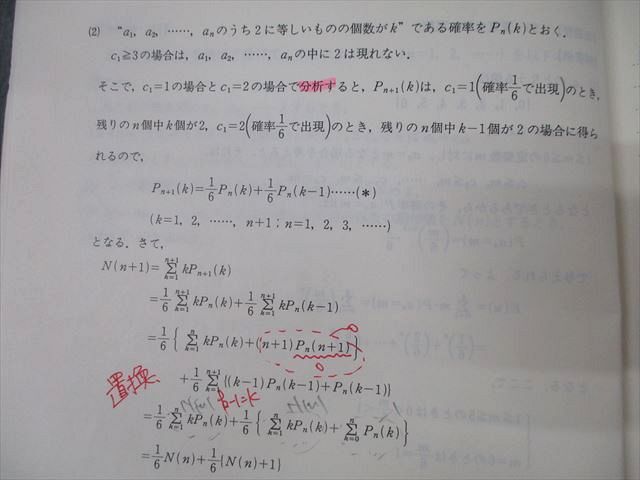 (2) “a₁, a₂, ……, aₙのうち2に等しいものの個数がk”である確率をPₙ(k)とおく.
c₁≧3の場合は, a₁, a₂, ……, aₙの中に2は現れない.
そこで, c₁=1の場合とc₁=2の場合で分析すると, Pₙ₊₁(k)は, c₁=1(確率1/6で出現)のとき,
残りのn個中k個が2, c₁=2(確率1/6で出現)のとき, 残りのn個中k-1個が2の場合に得ら
れるので,
Pₙ₊₁(k)=1/6Pₙ(k)+1/6Pₙ(k-1)……(*)
(k=1, 2, ……, n+1 ; n=1, 2, 3, ……)
となる. さて,
N(n+1)=∑_{k=1}^{n+1}kPₙ₊₁(k)
=1/6∑_{k=1}^{n+1}kPₙ(k)+1/6∑_{k=1}^{n+1}kPₙ(k-1)
=1/6{∑_{k=1}^{n}kPₙ(k)+(n+1)Pₙ(n+1)}
0
0
+1/6∑_{k=1}^{n+1}{(k-1)Pₙ(k-1)+Pₙ(k-1)}
置換
N(n) k-1=k N(n) 1
=1/6∑_{k=1}^{n}kPₙ(k)+1/6{∑_{k=1}^{n}kPₙ(k)+∑_{k=0}^{n}Pₙ(k)}
=1/6N(n)+1/6{N(n)+1}